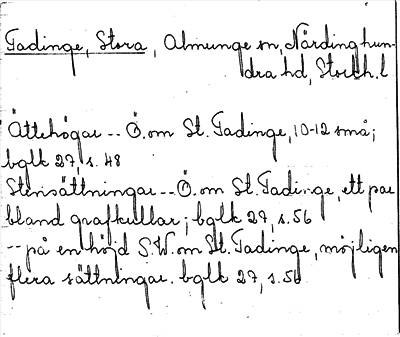 Tadinge, Stora, Almunge sn, Närdinghun-
dra hd, Stockh. l
Ättehögar -- Ö. om St. Tadinge, 10-12 små;
bglk 27, s. 48
Stensättningar -- Ö. om St. Tadinge, ett par
bland grafkullar; bglk 27, s. 56
-- på en höjd S.W. om St. Tadinge, möjligen
flera sättningar. bglk 27, s. 56